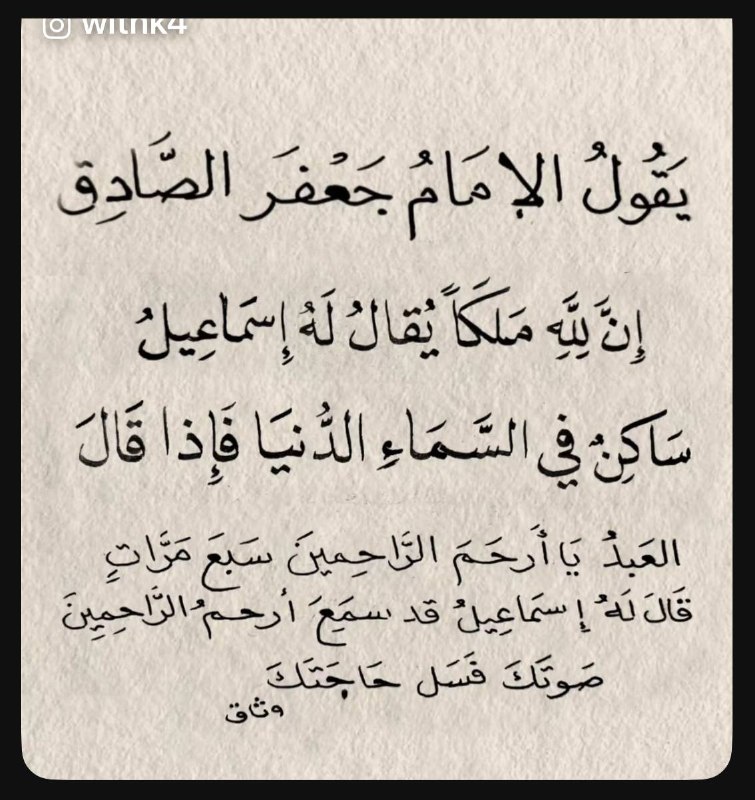 withk4
يَقُولُ الإمَامُ جَعْفَرَ الصَّادِق
إِنَّ لِلَّهِ مَلَكَاً يُقالُ لَهُ إِسمَاعِيلُ
سَاكِنٌ في السَّمَاءِ الدُّنيَا فَإِذا قَالَ
العَبدُ يَا أَرحَمَ الرَّاحِمِينَ سَبعَ مَرَّاتٍ
قَالَ لَهُ إِسمَاعِيلُ قد سَمِعَ أرحمُ الرَّاحِمِينَ
صَوتَكَ فَسَل حَاجَتَكَ
وثاق